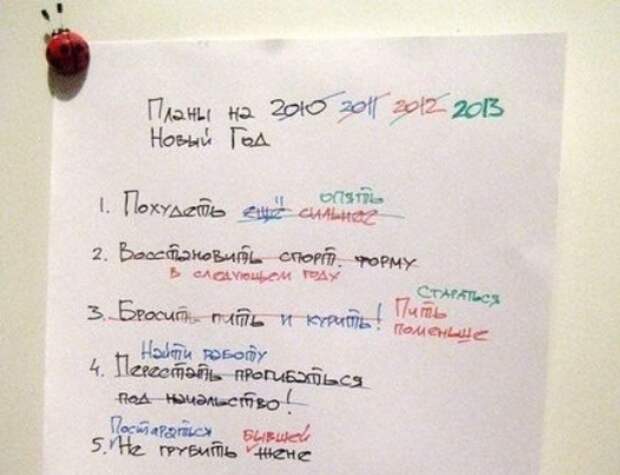 Планы на 2010 2011 2012 2013
Новый Год
опять
1. Похудеть ещё сильнее
2. Восстановить спорт. форму
в следующем году
Стараться
3. Бросить пить и курить! Пить
поменьше
Найти работу
4. Перестать прогибаться
под начальство!
Постараться бывшей
5. Не грубить жене